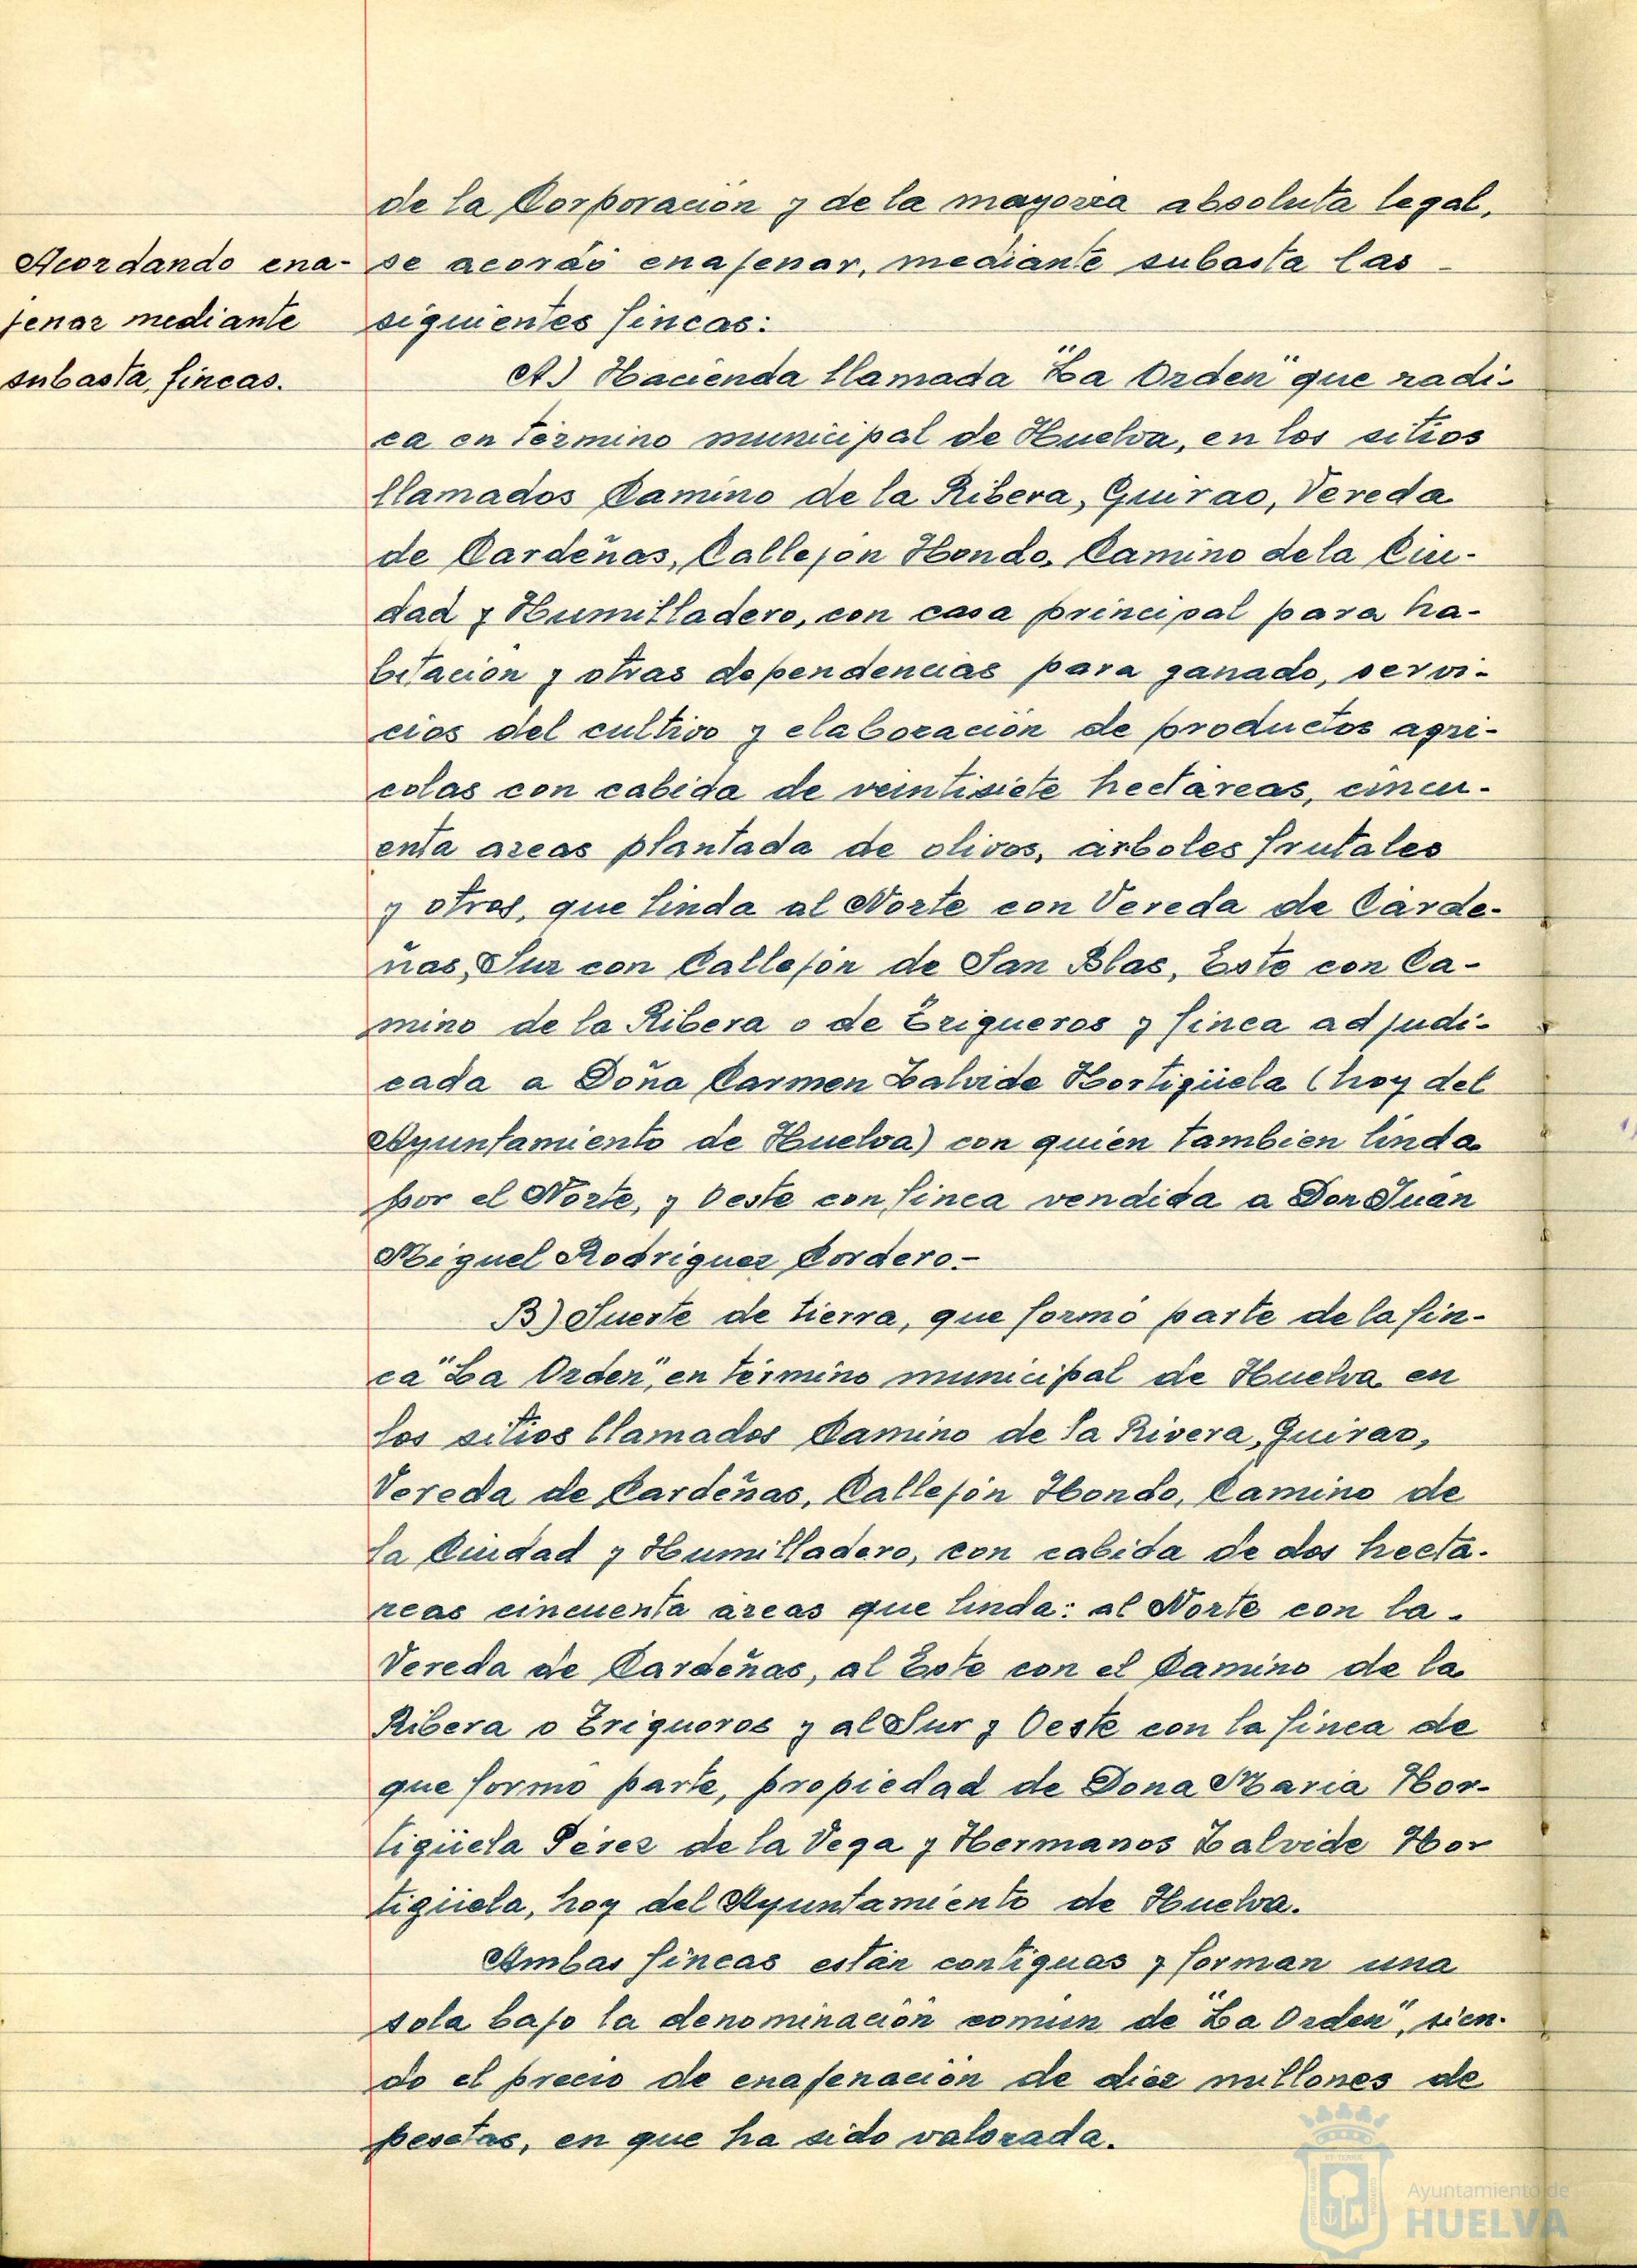 de la Corporación y de la mayoria absoluta legal,
Acordando ena-
jenar mediante
subasta, fincas.
se acordó enajenar, mediante subasta las -
siguientes fincas:
A) Hacienda llamada "La Orden" que radi-
ca en término municipal de Huelva, en los sitios
llamados Camino de la Ribera, Quirao, Vereda
de Cardeñas, Callejón Hondo, Camino de la Ciu-
dad y Humilladero, con casa principal para ha-
bitación y otras dependencias para ganado, servi-
cios del cultivo y elaboración de productos agri-
colas con cabida de veintisiete hectáreas, cincu-
enta areas plantada de olivos, árboles frutales
y otros, que linda al Norte con Vereda de Carde-
ñas, Sur con Callejón de San Blas, Este con Ca-
mino de la Ribera o de Trigueros y finca adjudi-
cada a Doña Carmen Zalvide Hortigüela (hoy del
Ayuntamiento de Huelva) con quien tambien linda
por el Norte, y Oeste con finca vendida a Don Juan
Miguel Rodriguez Cordero.-
B) Suerte de tierra, que formó parte de la fin-
ca "La Orden", en término municipal de Huelva en
los sitios llamados Camino de la Rivera, Quirao,
Vereda de Cardeñas, Callejón Hondo, Camino de
la Ciudad y Humilladero, con cabida de dos hectá-
reas cincuenta áreas que linda: al Norte con la -
Vereda de Cardeñas, al Este con el Camino de la
Ribera o Trigueros y al Sur y Oeste con la finca de
que formó parte, propiedad de Dona Maria Hor-
tigüela Pérez de la Vega y Hermanos Zalvide Hor
tigüela, hoy del Ayuntamiento de Huelva.
Ambas fincas están contiguas y forman una
sola bajo la denominación común de "La Orden", sien-
do el precio de enajenación de diez millones de
pesetas, en que ha sido valorada.
Ayuntamiento de
HUELVA